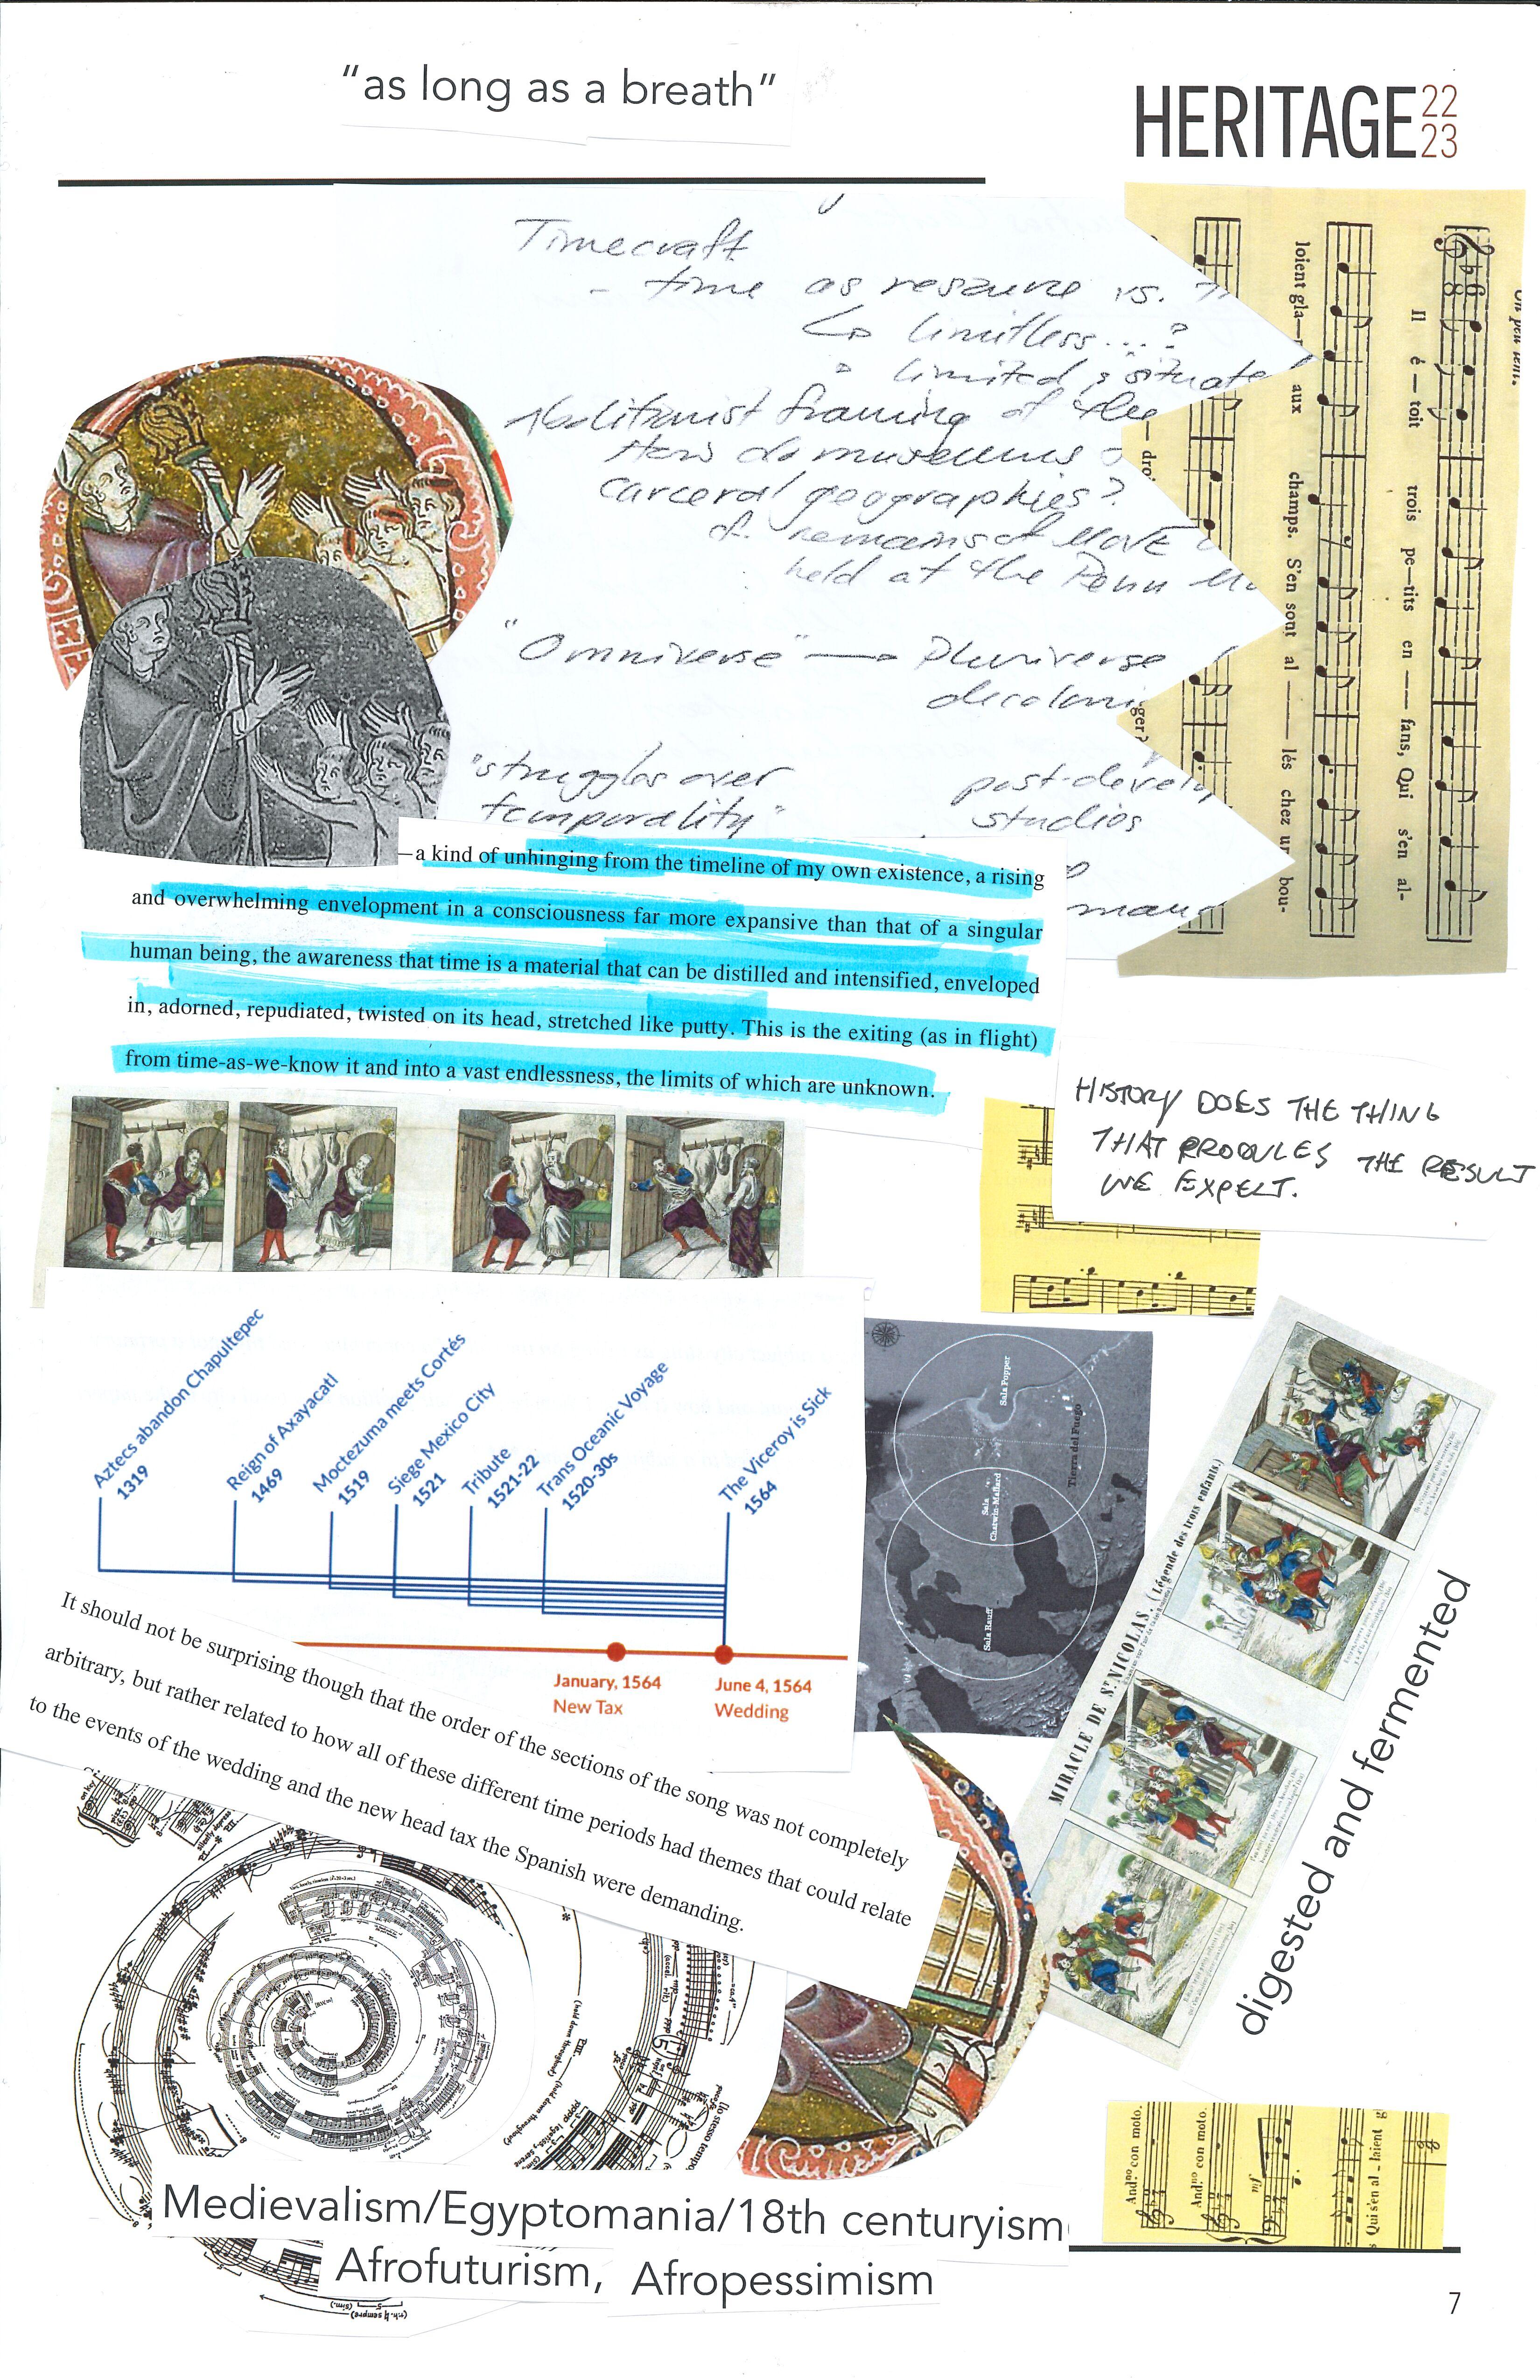 “as long as a breath”
HERITAGE 22
23
Timecraft
- time as resource vs.
↳ limitless...?
limited & situate
Abolitionist framing of the
How do museums
carceral geographies?
cf. remains of MOVE
held at the Penn Mu
"Omniverse" → Pluriverse
"struggles over
temporality"
post-develop
studies
Il é — toit trois pe—tits en — fans, Qui s'en al-
loient gla— aux champs. S'en sont al — lés chez un bou-
droi
ger?
—a kind of unhinging from the timeline of my own existence, a rising
and overwhelming envelopment in a consciousness far more expansive than that of a singular
human being, the awareness that time is a material that can be distilled and intensified, enveloped
in, adorned, repudiated, twisted on its head, stretched like putty. This is the exiting (as in flight)
from time-as-we-know it and into a vast endlessness, the limits of which are unknown.
HISTORY DOES THE THING
THAT PRODUCES THE RESULT
WE EXPECT.
Aztecs abandon Chapultepec
1319
Reign of Axayacatl
1469
Moctezuma meets Cortés
1519
Siege Mexico City
1521
Tribute
1521-22
Trans Oceanic Voyage
1520-30s
The Viceroy is Sick
1564
January, 1564
New Tax
June 4, 1564
Wedding
Sala Popper
Tierra del Fuego
Sala
Chatwin-Mallard
Sala Rauff
MIRACLE DE ST NICOLAS. (Légende des trois enfants.)
digested and fermented
It should not be surprising though that the order of the sections of the song was not completely
arbitrary, but rather related to how all of these different time periods had themes that could relate
to the events of the wedding and the new head tax the Spanish were demanding.
(hold down throughout)
(lo stesso tempo
Andno con moto.
Andno con moto.
mf
Qui s'en al _ laient g
Medievalism/Egyptomania/18th centuryism
Afrofuturism, Afropessimism
(r.h. sempre) (sim.)
7